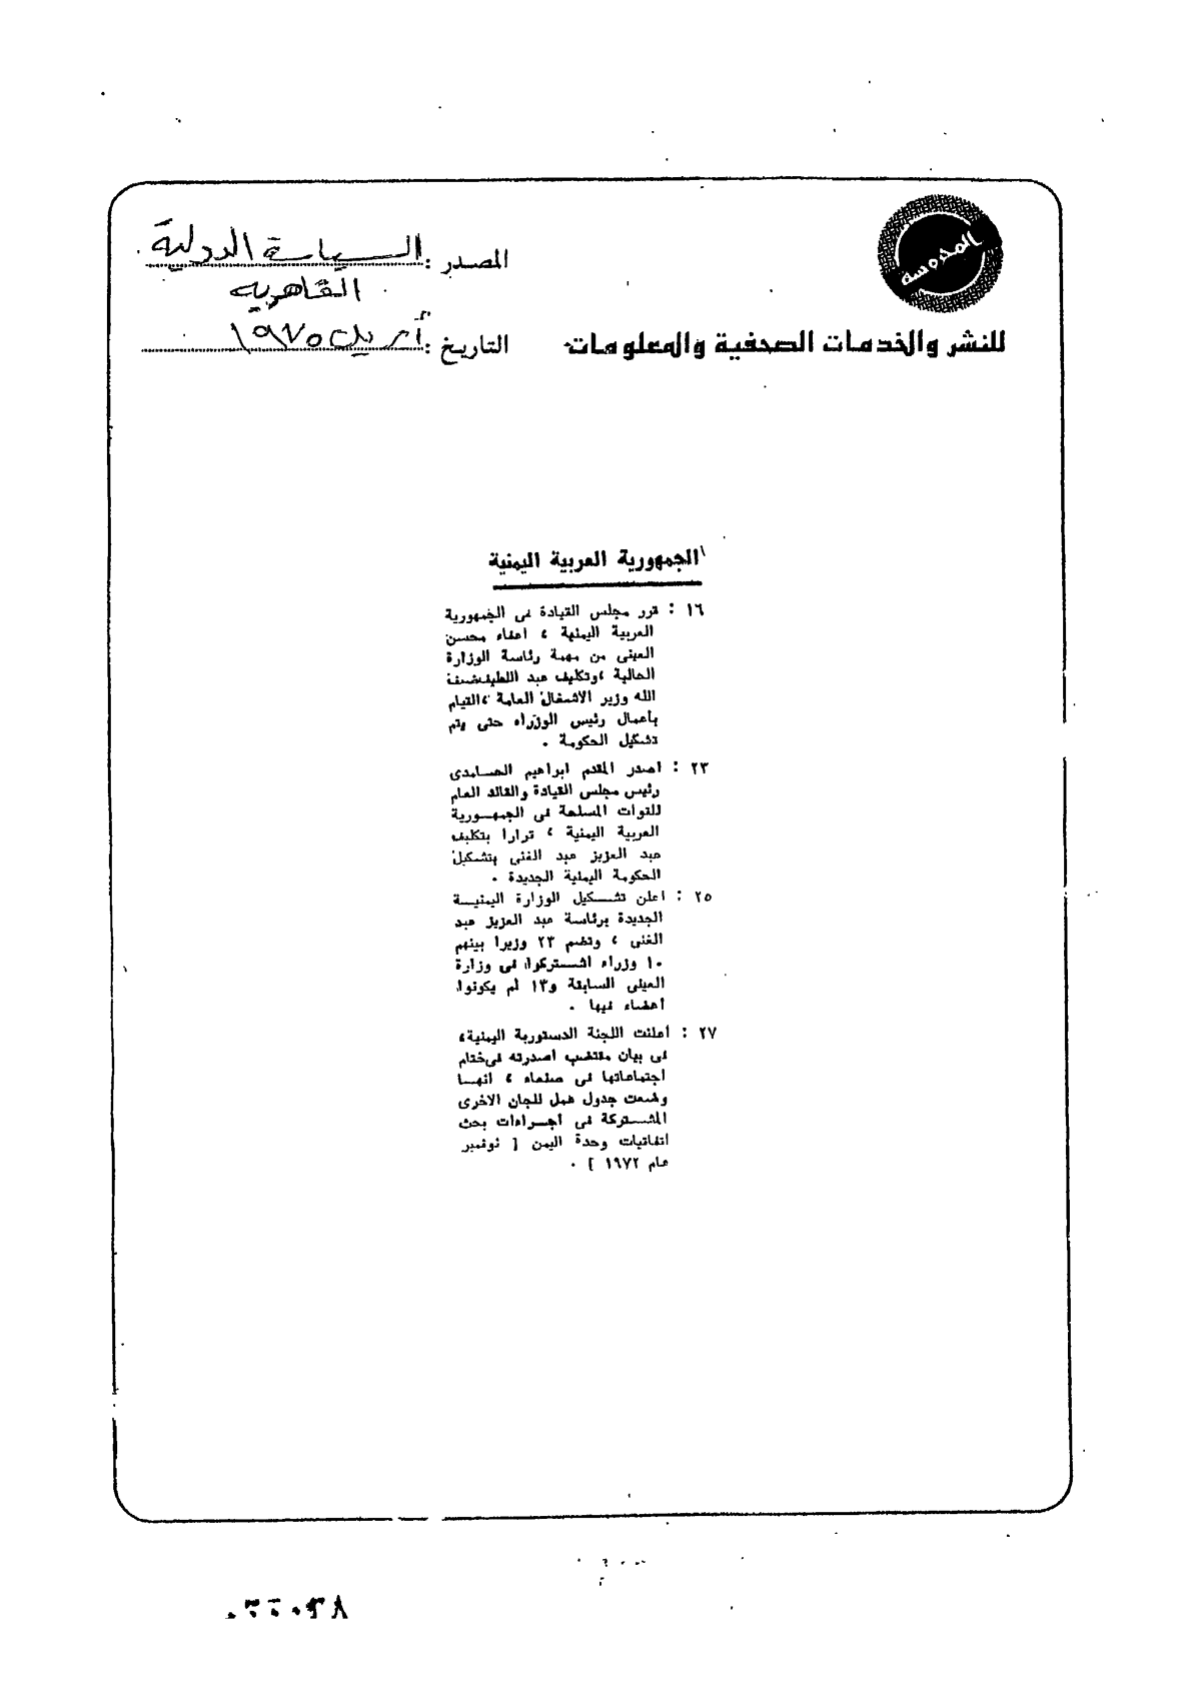 المحروسة
للنشر والخدمات الصحفية والمعلومات
المصدر : السياسة الدولية
القاهرية
التاريخ : أبريل ١٩٧٥
الجمهورية العربية اليمنية
١٦ : قرر مجلس القيادة فى الجمهورية
العربية اليمنية ، اعفاء محسن
العينى من مهمة رئاسة الوزارة
الحالية ، وتكليف عبد اللطيف ضيف
الله وزير الاشغال العامة ، القيام
بأعمال رئيس الوزراء حتى يتم
تشكيل الحكومة .
٢٣ : اصدر المقدم ابراهيم الحمامدى
رئيس مجلس القيادة والقائد العام
للقوات المسلحة فى الجمهورية
العربية اليمنية ، قرارا بتكليف
عبد العزيز عبد الغنى بتشكيل
الحكومة اليمنية الجديدة .
٢٥ : اعلن تشكيل الوزارة اليمنية
الجديدة برئاسة عبد العزيز عبد
الغنى ، وتضم ٢٣ وزيرا بينهم
١٠ وزراء اشتركوا فى وزارة
العينى السابقة و١٣ لم يكونوا
أعضاء فيها .
٢٧ : أعلنت اللجنة الدستورية اليمنية ،
فى بيان مقتضب أصدرته فى ختام
اجتماعاتها فى صنعاء ، انها
وضعت جدول عمل للجان الاخرى
المشتركة فى اجراءات بحث
اتفاقيات وحدة اليمن [ نوفمبر
عام ١٩٧٢ ] .